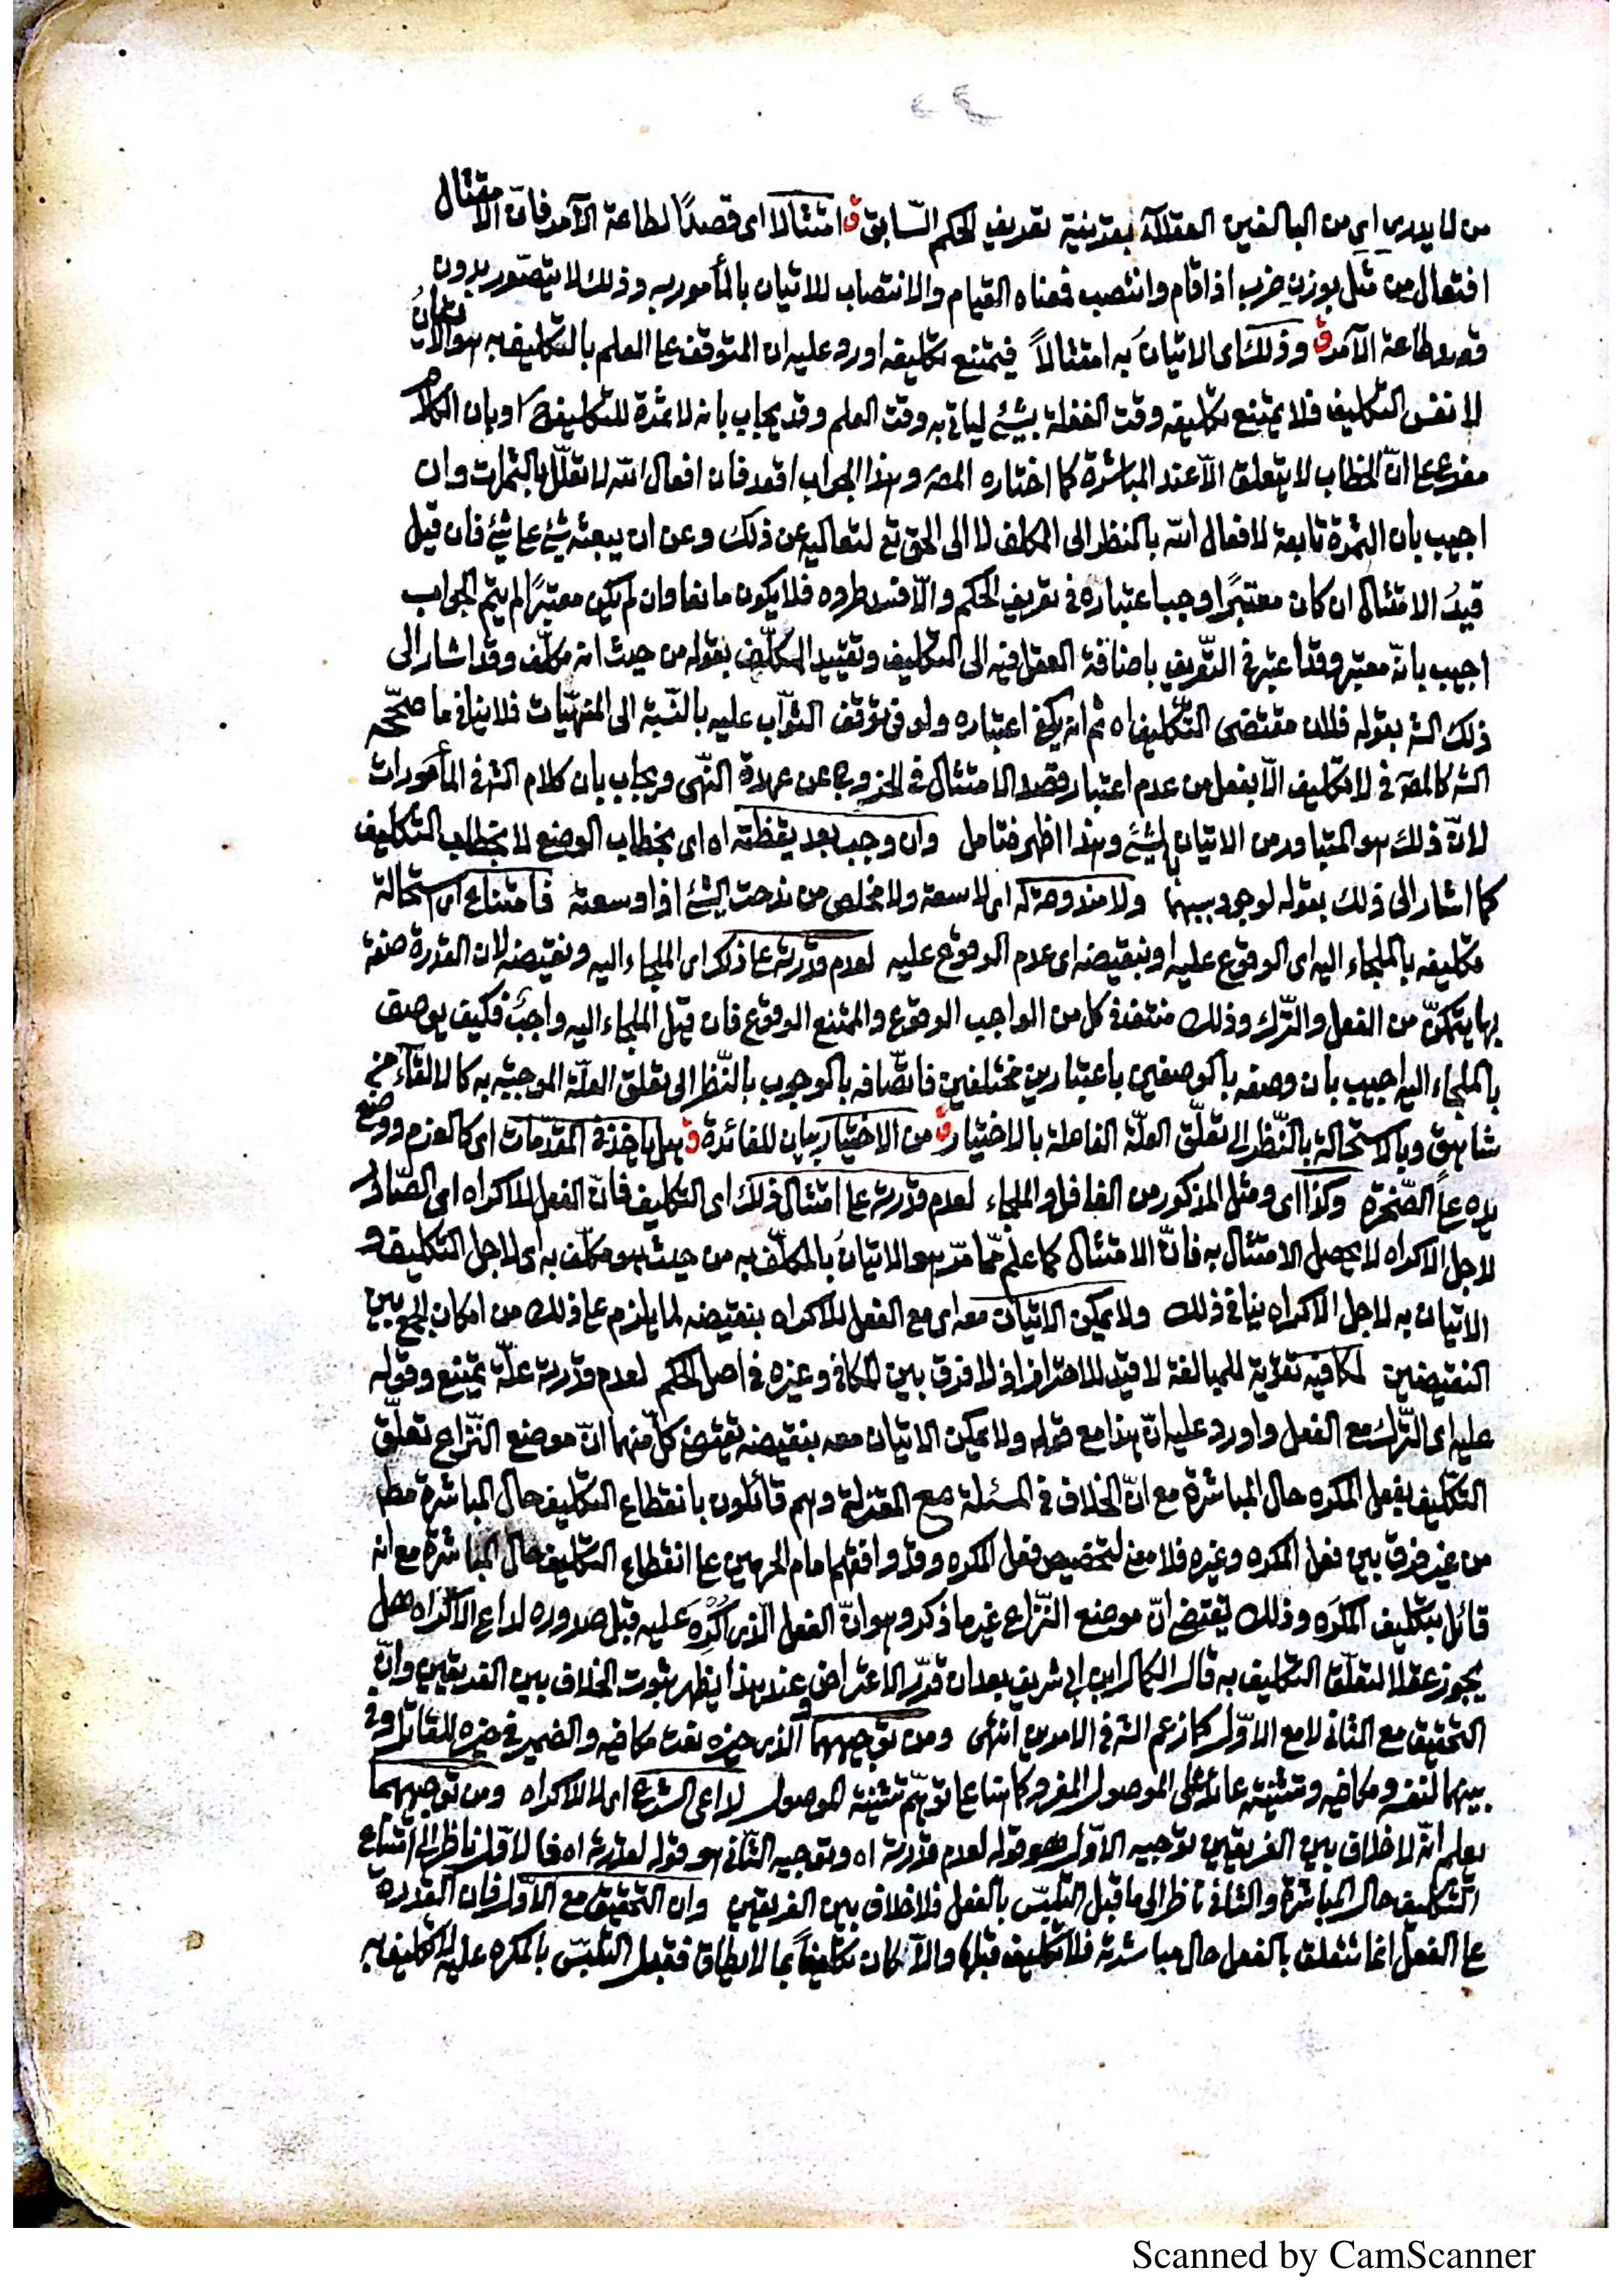 من لا يدرى اى من البالغين العقلآء بقرينة تعريف الحكم السّابق ق امتثالا اى قصدًا لطاعة الآمر فانّ الامتثال
افتعال من مثل بوزن ضرب اذا قام وانتصب فمعناه القيام والانتصاب للاتيان بالمأمور به وذلك لا يتصّور بدون
قصد طاعة الآمر ق وذلك اى الاتيان به امتثالاً فيمتنع تكليفه اورد عليه ان المتوقف على العلم بالتكليف به هو الاتيان
لا نفس التكليف فلا يمتنع تكليفه وقت الغفلة بشيئ لياتى به وقت العلم وقد يجاب بانه لا ثمرة للتكليف ح او بان الكلام
مفرع على انّ الخطاب لا يتعلق الّا عند المباشرة كما اختاره المصه وهذا الجواب اقعد فان افعال الله لا تعلّل بالثمرات وان
اجيب بان الثمرة تابعة لافعال الله بالنظر الى المكلف لا الى الحق تع لتعاليه عن ذلك وعن ان يبعثه شيئ على شيئ فان قيل
قيدُ الامتثال ان كان معتبرًا وجب اعتباره فى تعريف الحكم والّا فسد طرده فلا يكون مانعا وان لم يكن معتبرًا لم يتم الجواب
اجيب بانّه معتبر وقد اعتبر فى التّعريف باضافة الفعل فيه الى التكليف وتقييد المكلّف بقوله من حيث انه مكلّف وقد اشار الى
ذلك الشه بقوله فلان مقتضى التّكليف اه ثم انه يكفى اعتباره ولو فى توقف الثوّاب عليه بالنّسبة الى المنهيّات فلا ينافى ما صحّحه
الشه كالمصه فى لا تكليف الّا بفعل من عدم اعتبار قصد الامتثال فى الخروج عن عهدة النّهى ويجاب بان كلام الشه فى المأمورات
لانّ ذلك هو المتبادر من الاتيان بالشيئ وهذا اظهر فتامل وان وجب بعد يقظته اه اى بخطاب الوضع لا بخطاب التكليف
كما اشار الى ذلك بقوله لوجود سببهما ولا مندوحة له اى لا سعة ولا مخلص من ندحت الشيئ اذا وسعته فامتناع اى استحالة
تكليفه بالملجاء اليه اى الوقوع عليه او بنقيضه اى عدم الوقوع عليه لعدم قدرته على ذلك اى الملجاء اليه ونقيضه لان القدرة صفة
بها يتمكّن من الفعل والتّرك وذلك منتف فى كل من الواجب الوقوع والممتنع الوقوع فان قيل الملجاء اليه واجب فكيف يوصف
بالملجاء اليه اجيب بان وصفه بالوصفين باعتبارين مختلفين فاتّصافه بالوجوب بالنّظر الى تعلق العلّة الموجبة به كالالقآء من
شاهق وبالاستحالة بالنّظر الى تعلّق العلّة الفاعلة بالاختيار ق من الاختيار بيان للفائدة ق بهل ياخذ فى المقدّمات اى كالعزم ووضع
يده على الصّخرة وكذا اى ومثل المذكور من الغافل والملجاء لعدم قدرته على امتثال ذلك اى التكليف فانّ الفعل للاكراه اى الصّادر
لاجل الاكراه لا يحصل الامتثال به فانّ الامتثال كما علم ممّا مرّ هو الاتيانُ بالمكلّف به من حيث هو مكلّف به اى لاجل التكليف و
الاتيان به لاجل الاكراه ينافى ذلك ولا يمكن الاتيان معه اى مع الفعل للاكراه بنقيضه لما يلزم على ذلك من امكان الجمع بين
النقيضين لمكافيه تقوية للمبالغة لا قيد للاحتراز اذ لا فرق بين المكافى وغيره فى اصل الحكم لعدم قدرته علّة يمتنع وقوله
عليه اى التّرك مع الفعل واورد عليه انّ هذا مع قوله ولا يمكن الاتيان معه بنقيضه يقتضى كلّ منهما انّ موضع النّزاع تعلّق
التكليف بفعل المكره حال المباشرة مع انّ الخلاف فى المسئلة مع المعتزلة وهم قائلون بانقطاع التكليف حال المباشرة مطلقا
من غير فرق بين فعل المكره وغيره فلا معنى لتخصيص فعل المكره وقد وافقهم امام الحرمين على انقطاع التكليف حال المباشرة مع انه
قائل بتكليف المكره وذلك يقتضى انّ موضع النّزاع غير ما ذكر وهو انّ الفعل الّذى اُكْرِهَ عليه قبل صدوره لداع الاكراه هل
يجوز عقلا لتعلّق التكليف به قال الكمال ابن ابى شريف بعد ان قرّر الاعتراض وعند هذا يظهر ثبوت الخلاف بين الفريقين وانّ
التحقيق مع الثانى لا مع الاوّل كما زعم الشه فى الامرين انتهى ومن توجيههما الّذى حيزه نعت مكافيه والضمير فى حيزه للقاتل وفى
بينهما لنفسه ومكافيه وتثنيته عائد على الموصول المفرد كامتناع توهّم تثنية الموصول لداعى الشرع اى لا للاكراه ومن توجيههما
يعلم انّه لا خلاف بين الفريقين توجيه الاوّل هو قوله لعدم قدرته اه وتوجيه الثّانى هو قوله لقدرته اه فالاوّل ناظر الى امتناع
التكليف حال المباشرة والثانى ناظر الى ما قبل التلبّس بالفعل فلا خلاف بين الفريقين وان التحقيق مع الاوّل فان القدرة
على الفعل انما تتعلق بالفعل حال مباشرته فلا تكليف قبلها والّا كان تكليفاً بما لا يطاق فقبل التلبّس بالمكره عليه لا تكليف به
Scanned by CamScanner